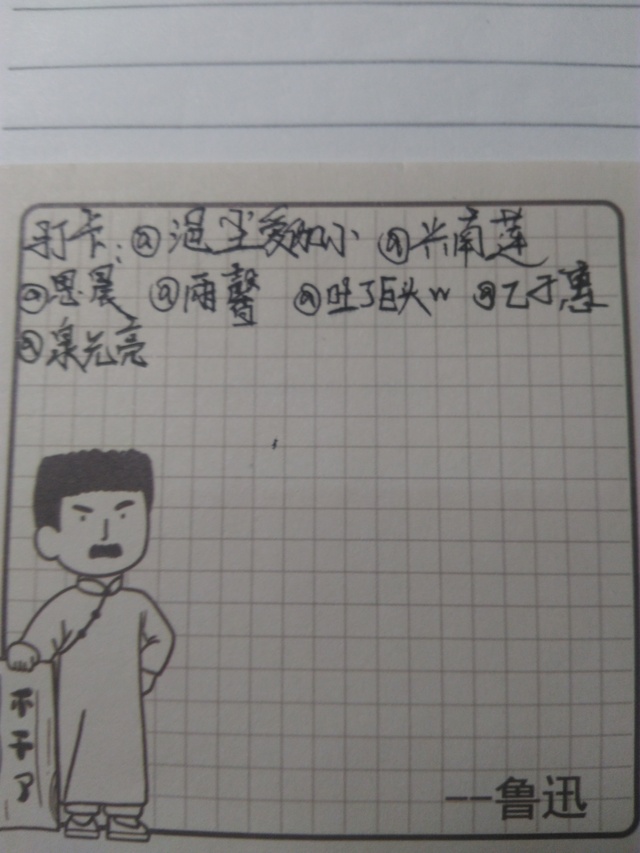 打卡: @温尘爱加小 @兴南莲
@思晨 @雨馨 @吐了巨头w @乙于惠
@泉元亮
不干了
--鲁迅